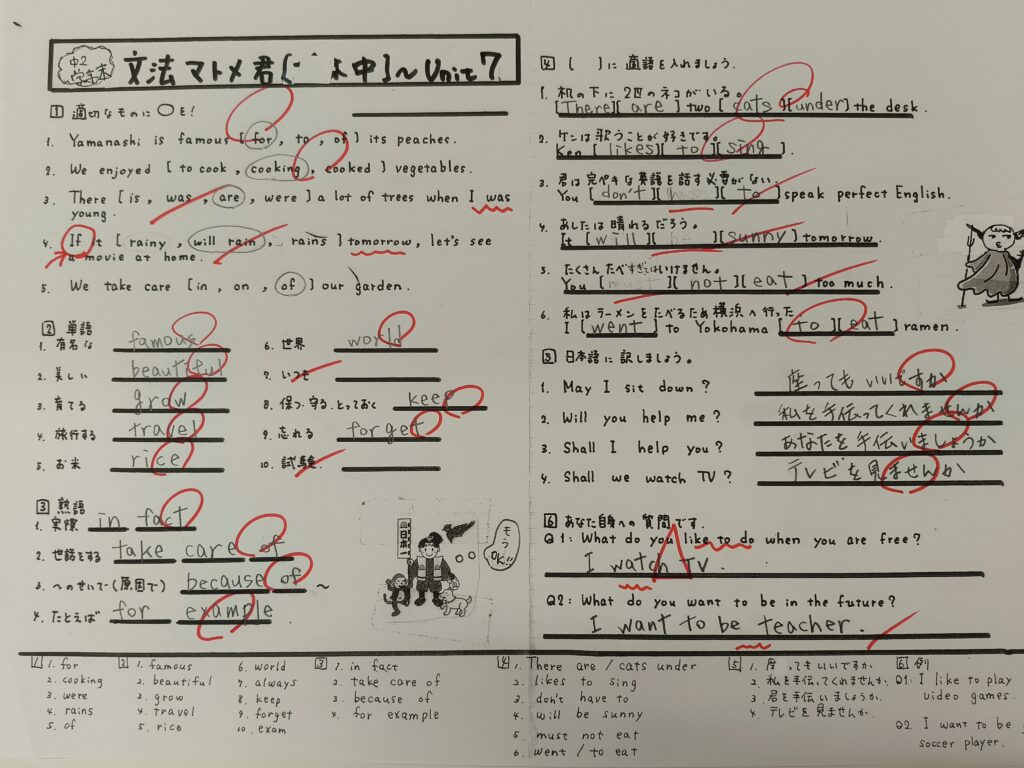 中2
学年末
文法マトメ君[ 中]~Unit 7
1 適切なものに○を!
1. Yamanashi is famous [for, to, of] its peaches.
2. We enjoyed [to cook, cooking, cooked] vegetables.
3. There [is, was, are, were] a lot of trees when I was
young.
4. If it [rainy, will rain, rains] tomorrow, let's see
a movie at home.
5. We take care [in, on, of] our garden.
2 単語
1. 有名な famous
2. 美しい beautiful
3. 育てる grow
4. 旅行する travel
5. お米 rice
6. 世界 world
7. いつも
8. 保つ、守る、とっておく keep
9. 忘れる forget
10. 試験
3 熟語
1. 実際 in fact
2. 世話をする take care of
3. ~のせいで(原因で) because of ~
4. たとえば for example
日本一
もうOK!!
4 [ ]に適語を入れましょう。
1. 机の下に2匹のネコがいる。
[There][are] two [cats][under] the desk.
2. ケンは歌うことが好きです。
Ken [likes][to][sing].
3. 君は完ペキな英語を話す必要がない。
You [don't][ ][to] speak perfect English.
4. あしたは晴れるだろう。
It [will][be][sunny] tomorrow.
5. たくさんたべすぎてはいけません。
You [must][not][eat] too much.
6. 私はラーメンをたべるため横浜へ行った
I [went] to Yokohama [to][eat] ramen.
5 日本語に訳しましょう。
1. May I sit down? 座ってもいいですか
2. Will you help me? 私を手伝ってくれませんか
3. Shall I help you? あなたを手伝いましょうか
4. Shall we watch TV? テレビを見ませんか
6 あなた自身への質問です.
Q1: What do you like to do when you are free?
I watch TV.
Q2: What do you want to be in the future?
I want to be teacher.
1 1. for
2. cooking
3. were
4. rains
5. of
2 1. famous
2. beautiful
3. grow
4. travel
5. rice
6. world
7. always
8. keep
9. forget
10. exam
3 1. in fact
2. take care of
3. because of
4. for example
4 1. There are / cats under
2. likes to sing
3. don't have to
4. will be sunny
5. must not eat
6. went / to eat
5 1.座ってもいいですか
2. 私を手伝ってくれませんか
3. 君を手伝いましょうか.
4. テレビを見ませんか.
6 例
Q1. I like to play
video games.
Q2. I want to be
soccer player.